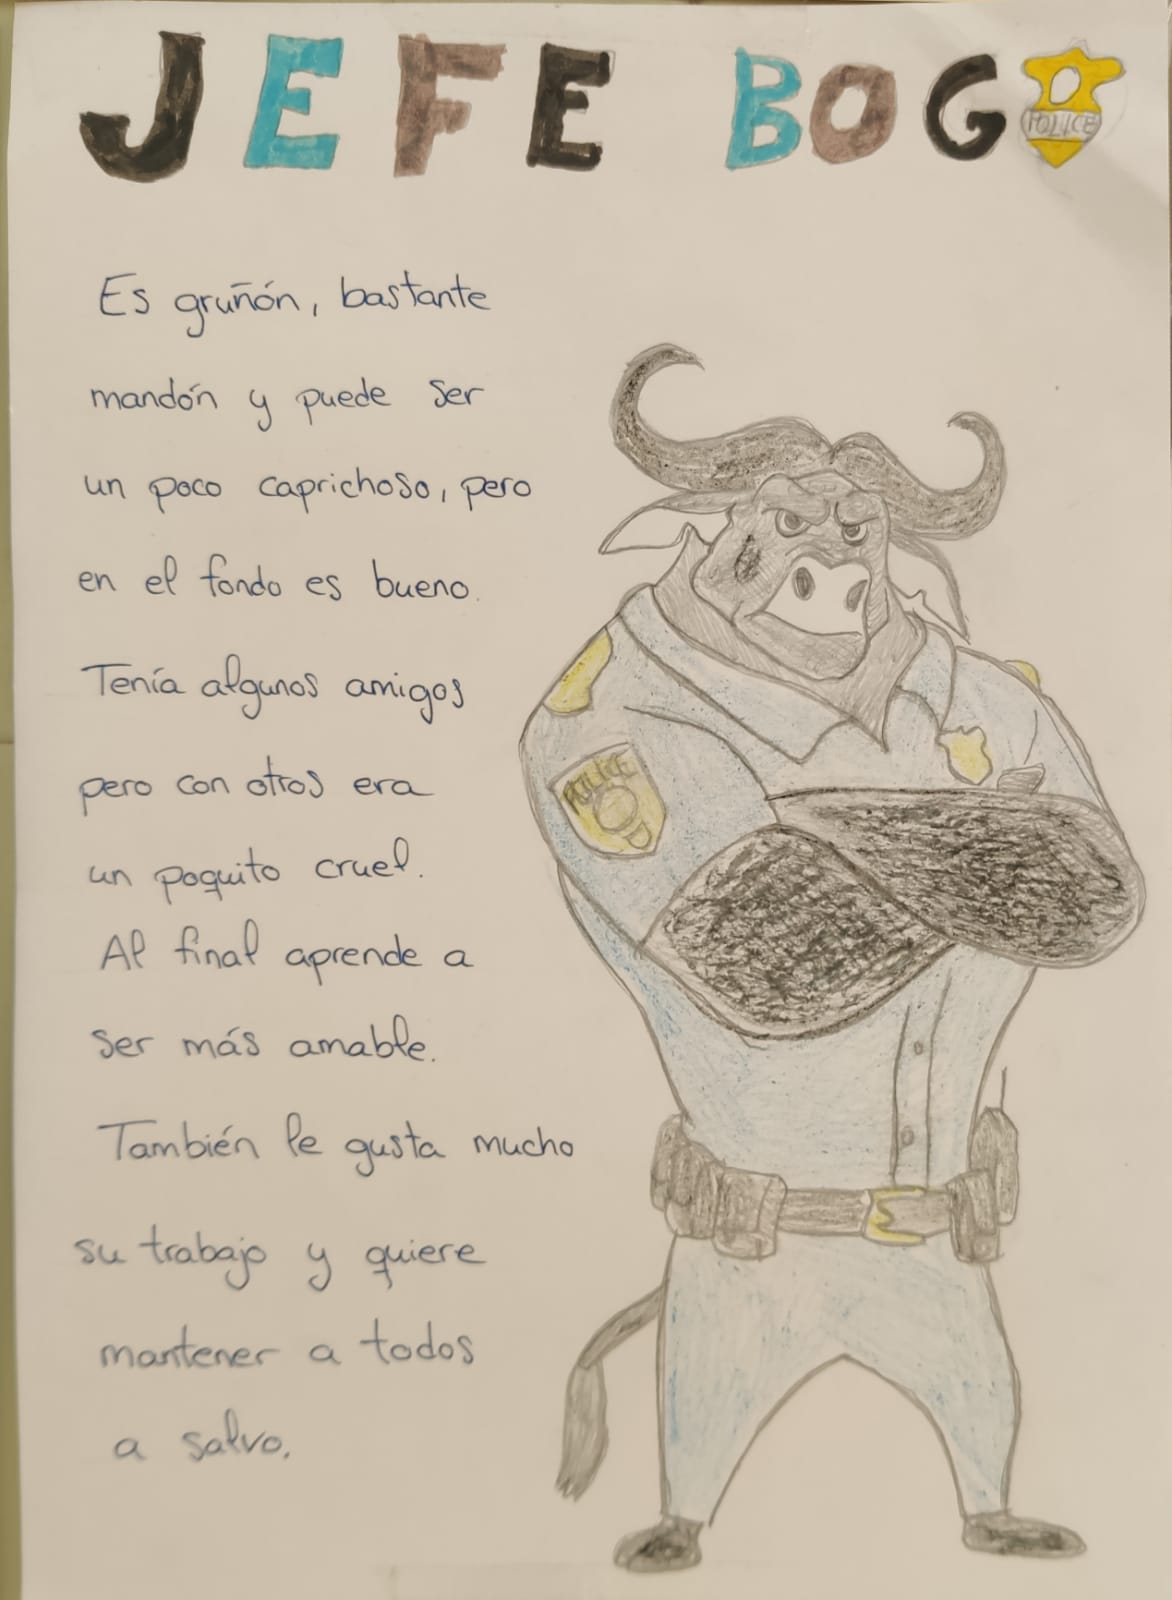 JEFE BOGO
POLICE
Es gruñón, bastante
mandón y puede ser
un poco caprichoso, pero
en el fondo es bueno.
Tenía algunos amigos
pero con otros era
un poquito cruel.
Al final aprende a
ser más amable.
También le gusta mucho
su trabajo y quiere
mantener a todos
a salvo.
POLICE